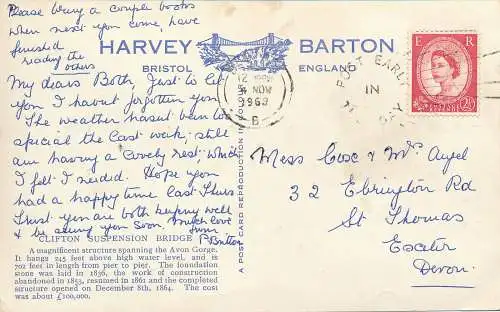 Please bring a couple books
when next you come, have
finished
reading the
others
HARVEY BARTON
BRISTOL ENGLAND
My dears Both, Just to let
you I havent forgotten you
The weather hasnt been too
special the last week. still
am having a lovely rest which
I felt I needed. Hope you
had a happy time last Thurs.
Trust you are both keeping well
& be seeing you soon. Much love
from
P Britton
CLIFTON SUSPENSION BRIDGE
A magnificent structure spanning the Avon Gorge.
It hangs 245 feet above high water level, and is
702 feet in length from pier to pier. The foundation
stone was laid in 1836, the work of construction
abandoned in 1853, resumed in 1861 and the completed
structure opened on December 8th, 1864. The cost
was about £100,000.
A POST CARD REPRODUCTION
12
4 NOV
1963
B
POST EARLY
IN
E R
2½D
Miss Cose & Mrs
32 Ebrington Rd
St Thomas
Exeter
Devon.